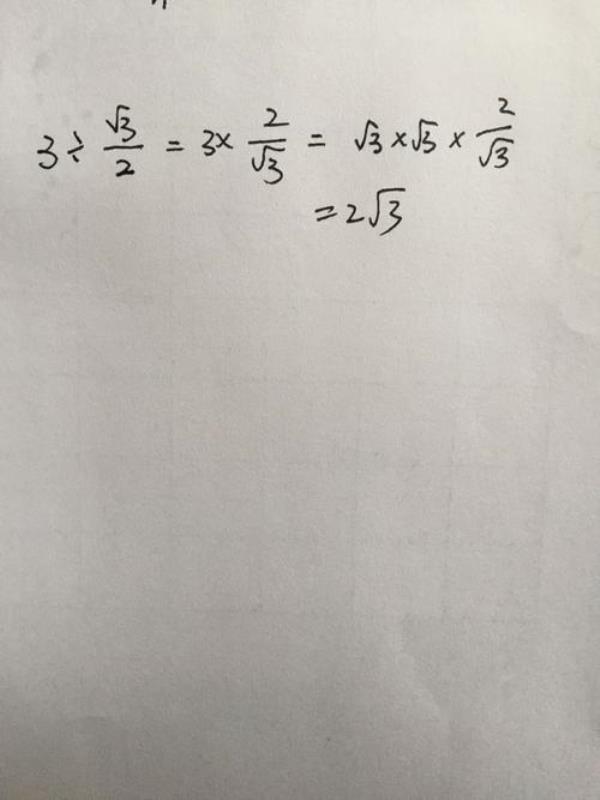 3 ÷ √3/2 = 3 × 2/√3 = √3 × √3 × 2/√3
= 2√3